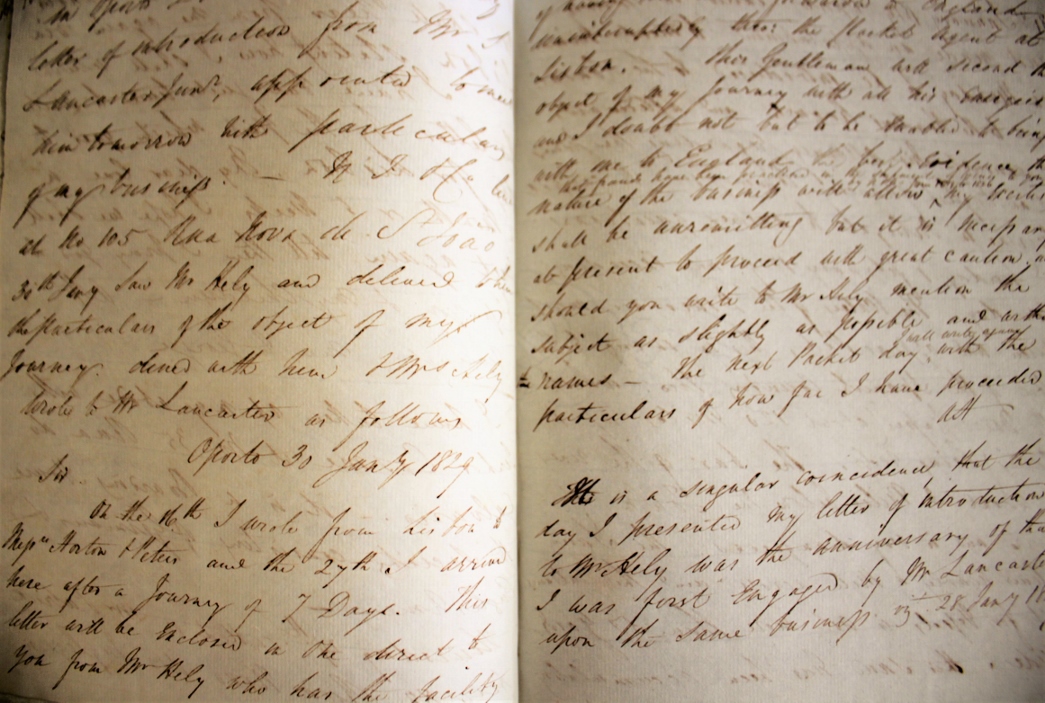 in Oporto
letter of introduction from Mr J
Lancaster Junr, appointed to meet
him tomorrow with particulars
of my business. — H. I. & Co live
at No 105 Rua Nova de S João
30th Jany Saw Mr Hely and delivered to him
the particulars of the object of my
Journey. dined with him & Mrs Hely
wrote to Mr Lancaster as follows
Oporto 30 Jany 1829
Sir
On the 16th I wrote from Lisbon to
Messrs Horton & Peters and the 27th I arrived
here after a Journey of 7 Days. This
letter will be Enclosed in one direct to
you from Mr Hely who has the facility
of England
uninterruptedly thro: the Packet Agent at
Lisbon. — This Gentleman will second the
object of my Journey with all his
and I doubt not but to be Enabled to bring
with me to England the best Evidence the
nature of the business will allow, my
shall be unremitting but it is necessary
at present to proceed with great caution,
should you write to Mr Hely mention the
subject as slightly as possible and with
names — The next Packet day I will write again with the
particulars of how far I have proceeded
It is a singular coincidence that the
day I presented my letter of introduction
to Mr Hely was the anniversary of that
I was first Engaged by Mr Lancaster
upon the same business vizt 28 Jany